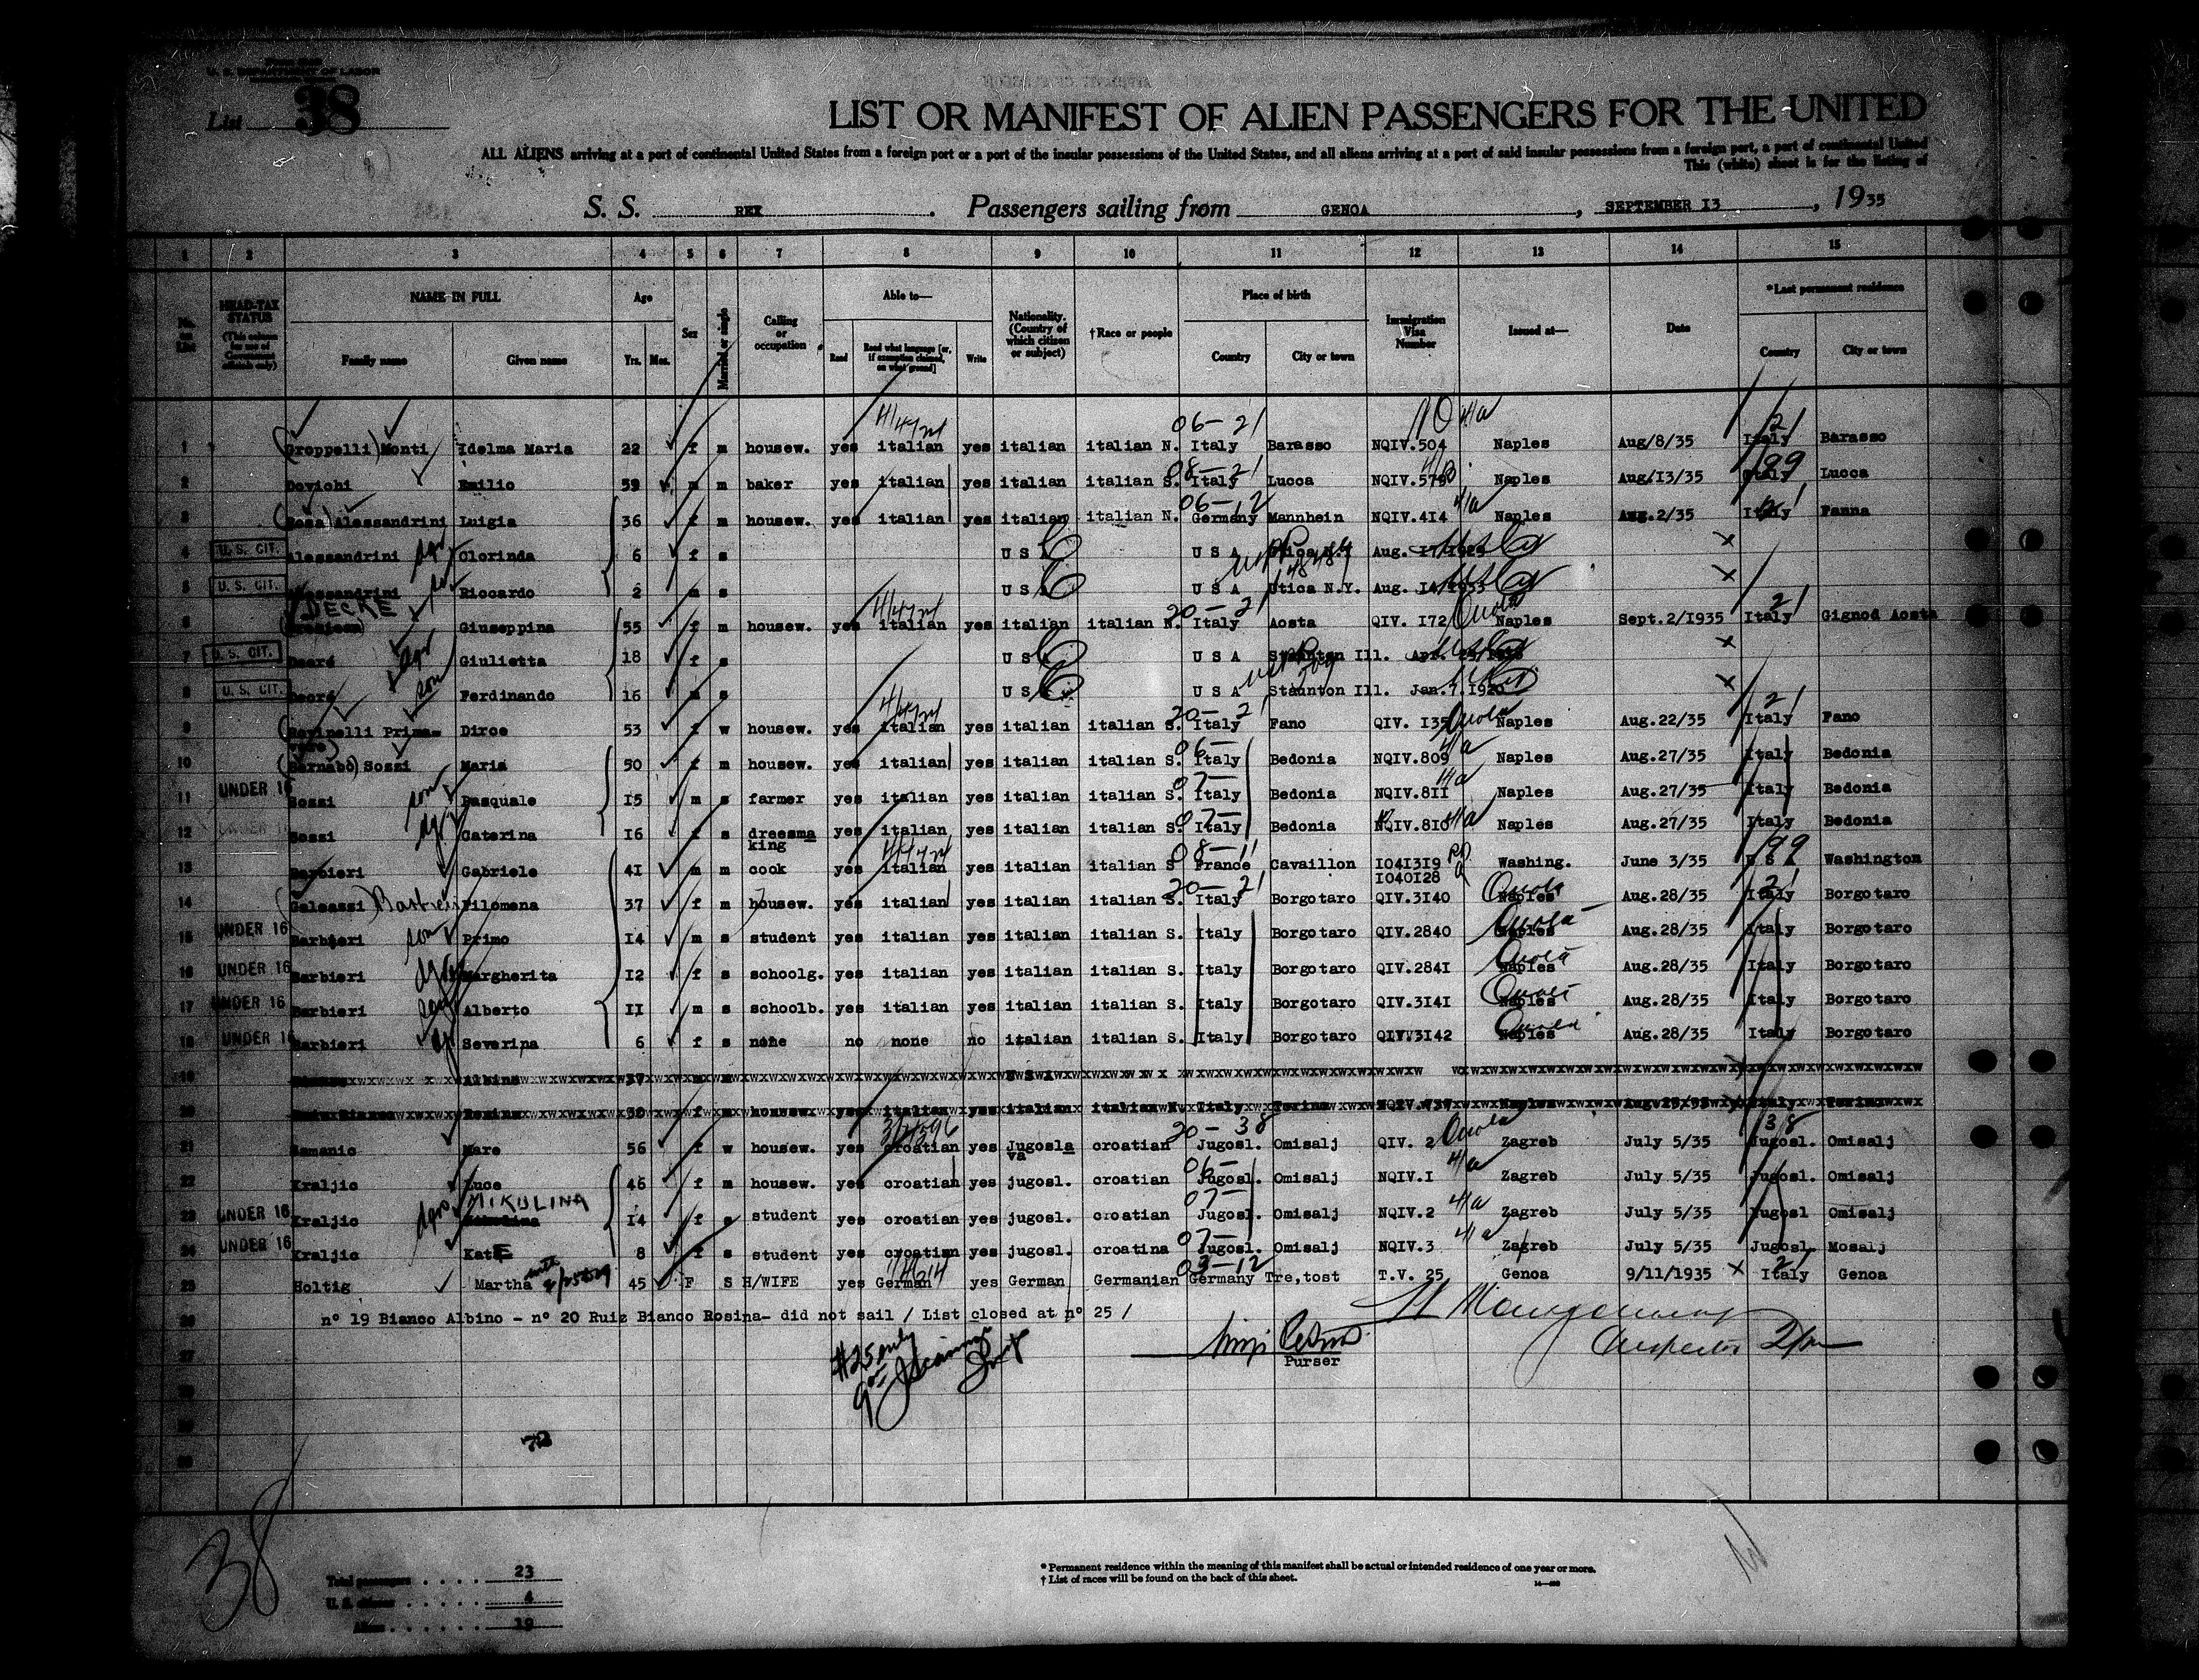 U. S. DEPARTMENT OF LABOR
List 38
LIST OR MANIFEST OF ALIEN PASSENGERS FOR THE UNITED
ALL ALIENS arriving at a port of continental United States from a foreign port or a port of the insular possessions of the United States, and all aliens arriving at a port of said insular possessions from a foreign port, a port of continental United
This (white) sheet is for the listing of
S. S. REX. Passengers sailing from GENOA, SEPTEMBER 13, 1935
1 2 3 4 5 6 7 8 9 10 11 12 13 14 15
No. on List
HEAD-TAX STATUS (This column for use of Government officials only)
NAME IN FULL Family name Given name
Age Yrs. Mos.
Sex
Married or single
Calling or occupation
Able to— Read Read what language [or, if exemption claimed, on what ground] Write
Nationality. (Country of which citizen or subject)
†Race or people
Place of birth Country City or town
Immigration Visa Number
Issued at—
Date
*Last permanent residence Country City or town
1 (Groppelli) Monti Idelma Maria 22 f m housew. yes italian yes italian italian N. Italy Barasso NQIV.504 Naples Aug/8/35 Italy Barasso
2 Dovichi Emilio 59 m m baker yes italian yes italian italian S. Italy Lucca NQIV.579 Naples Aug/13/35 Italy Lucca
3 (Rosa) Alessandrini Luigia 36 f m housew. yes italian yes italian italian N. Germany Mannhein NQIV.414 Naples Aug.2/35 Italy Fanna
4 U. S. CIT. Alessandrini Clorinda 6 f s U S A U S A Utica N.Y. Aug.
5 U. S. CIT. Alessandrini Riccardo 2 m s U S A U S A Utica N.Y. Aug.
DECKE
6 Giuseppina 55 f m housew. yes italian yes italian italian N. Italy Aosta QIV. 172 Naples Sept.2/1935 Italy Gignod Aosta
7 U. S. CIT. Giulietta 18 f s U S A U S A Staunton Ill. Apr.
8 U. S. CIT. son Ferdinando 16 m s U S A U S A Staunton Ill. Jan.7.1920
9 (Rovinelli Prima= vere) Dirce 53 f w housew. yes italian yes italian italian S. Italy Fano QIV. 135 Naples Aug.22/35 Italy Fano
10 (Barnabo) Sozzi Maria 50 f m housew. yes italian yes italian italian S. Italy Bedonia NQIV.809 Naples Aug.27/35 Italy Bedonia
11 UNDER 16 Sozzi son Pasquale 15 m s farmer yes italian yes italian italian S. Italy Bedonia NQIV.811 Naples Aug.27/35 Italy Bedonia
12 UNDER 16 Sozzi Caterina 16 f s dressma king yes italian yes italian italian S. Italy Bedonia NQIV.810 Naples Aug.27/35 Italy Bedonia
13 Barbieri Gabriele 41 m m cook yes italian yes italian italian S France Cavaillon 1041319 1040128 Washing. June 3/35 U S A Washington
14 (Galeazzi) Barbieri Filomena 37 f m housew. yes italian yes italian italian S. Italy Borgotaro QIV.3140 Naples Aug.28/35 Italy Borgotaro
15 UNDER 16 Barbieri son Primo 14 m s student yes italian yes italian italian S. Italy Borgotaro QIV.2840 Naples Aug.28/35 Italy Borgotaro
16 UNDER 16 Barbieri Margherita 12 f s schoolg. yes italian yes italian italian S. Italy Borgotaro QIV.2841 Naples Aug.28/35 Italy Borgotaro
17 UNDER 16 Barbieri son Alberto 11 m s schoolb. yes italian yes italian italian S. Italy Borgotaro QIV.3141 Naples Aug.28/35 Italy Borgotaro
18 UNDER 16 Barbieri Severina 6 f s none no none no italian italian S. Italy Borgotaro QIVV3142 Naples Aug.28/35 Italy Borgotaro
19 Albino 37
20 Rosina 30 f m housew yes italian yes italian italian N Italy Torino NQIV.737 Naples Italy Torino
21 Samanic Mare 56 f w housew. yes croatian yes Jugosla va croatian Jugosl. Omisalj QIV. 2 Zagreb July 5/35 Jugosl. Omisalj
22 Kraljic Luce 46 f m housew. yes croatian yes jugosl. croatian Jugosl. Omisalj NQIV.1 Zagreb July 5/35 Jugosl. Omisalj
23 UNDER 16 Kraljic MIKULINA 14 f s student yes croatian yes jugosl. croatian Jugosl. Omisalj NQIV.2 Zagreb July 5/35 Jugosl Omisalj
24 UNDER 16 Kraljic KatE 8 f s student yes croatian yes jugosl. croatina Jugosl. Omisalj NQIV.3 Zagreb July 5/35 Jugosl. Mosalj
25 Holtig Martha 45 F S H/WIFE yes German yes German Germanian Germany Tre,tost T.V. 25 Genoa 9/11/1935 Italy Genoa
26 n° 19 Bianco Albino - n° 20 Ruiz Bianco Rosina- did not sail / List closed at n° 25 /
27 Purser
28
29
30
38
Total passengers 23
U. S. citizens 4
Aliens 19
* Permanent residence within the meaning of this manifest shall be actual or intended residence of one year or more.
† List of races will be found on the back of this sheet.